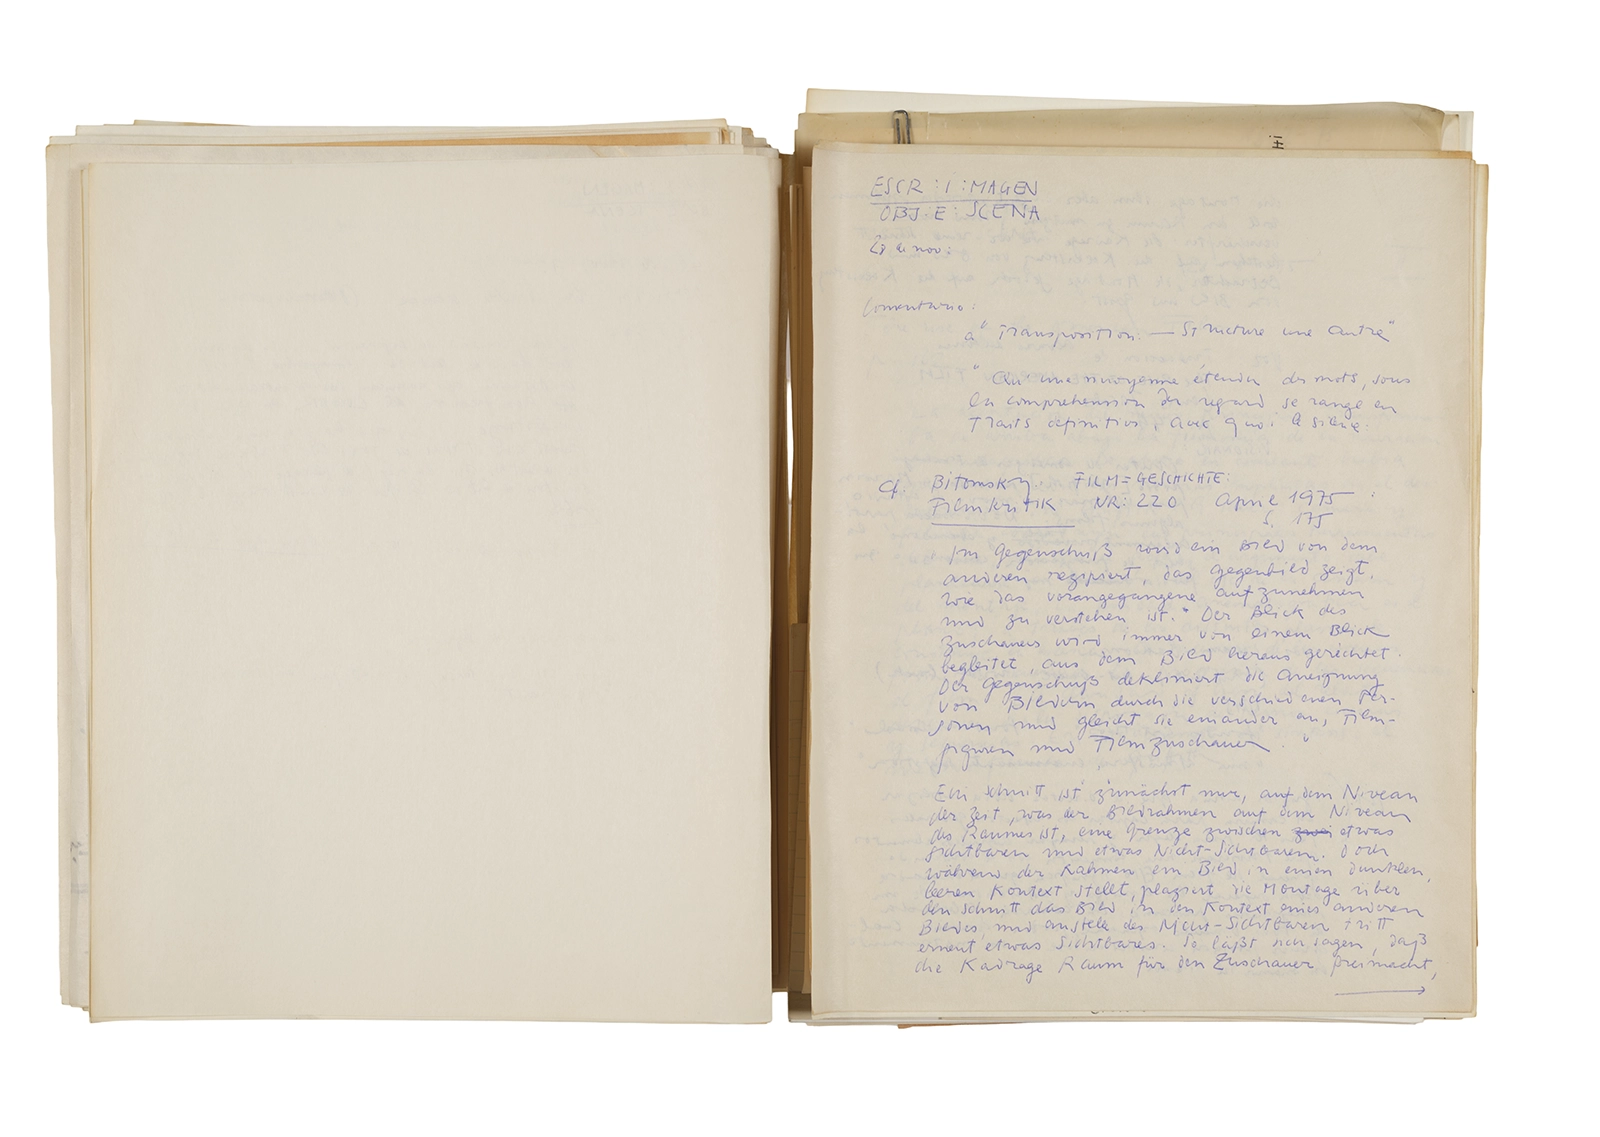 ESCR : I : MAGEN
OBJ : E : SCENA
28 de nov:
Comentario:
a "Transposition: — Structure une autre"
"Qu'une moyenne étendue des mots, sous
la compréhension du regard, se range en
traits définitifs, avec quoi le silence.
Cf. Bitomsky. FILM=GESCHICHTE:
Filmkritik NR: 220 April 1975
S. 175
Im Gegenschuß wird ein Bild von dem
anderen rezipiert, das Gegenbild zeigt,
wie das vorangegangene aufzunehmen
und zu verstehen ist." Der Blick des
Zuschauers wird immer von einem Blick
begleitet, aus dem Bild heraus gerichtet.
Der Gegenschuß dekliniert die Aneignung
von Bildern durch die verschiedenen Per-
sonen und gleicht sie einander an, Film-
figuren und Filmzuschauer."
Ein Schnitt ist zunächst nur, auf dem Niveau
der Zeit, was der Bildrahmen auf dem Niveau
des Raumes ist, eine Grenze zwischen zwei etwas
Sichtbaren und etwas Nicht-Sichtbarem. Doch
während der Rahmen ein Bild in einen dunklen,
leeren Kontext stellt, plaziert die Montage über
den Schnitt das Bild in den Kontext eines anderen
Bildes, und anstelle des Nicht-Sichtbaren tritt
erneut etwas Sichtbares. So läßt sich sagen, daß
die Kadrage Raum für den Zuschauer freimacht,